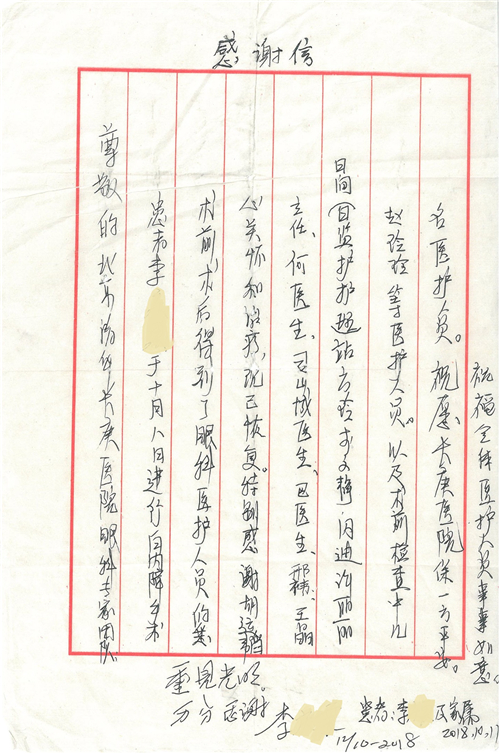 感谢信
尊敬的北京清华长庚医院眼科专家团队
患者李于十月八日进行白内障手术
术前术后得到了眼科医护人员的悉
心关怀和治疗，现已恢复。特别感谢胡运韬
主任、何医生、山城医生、巴医生、王晶
日间日监护护站
赵玲玲等医护人员。以及术前检查中几
名医护人员。祝愿长庚医院保一方平安。
祝福全体医护人员事事如意。
重见光明。
万分感谢
李
12/10-2018
患者：李及家属
2018.10.